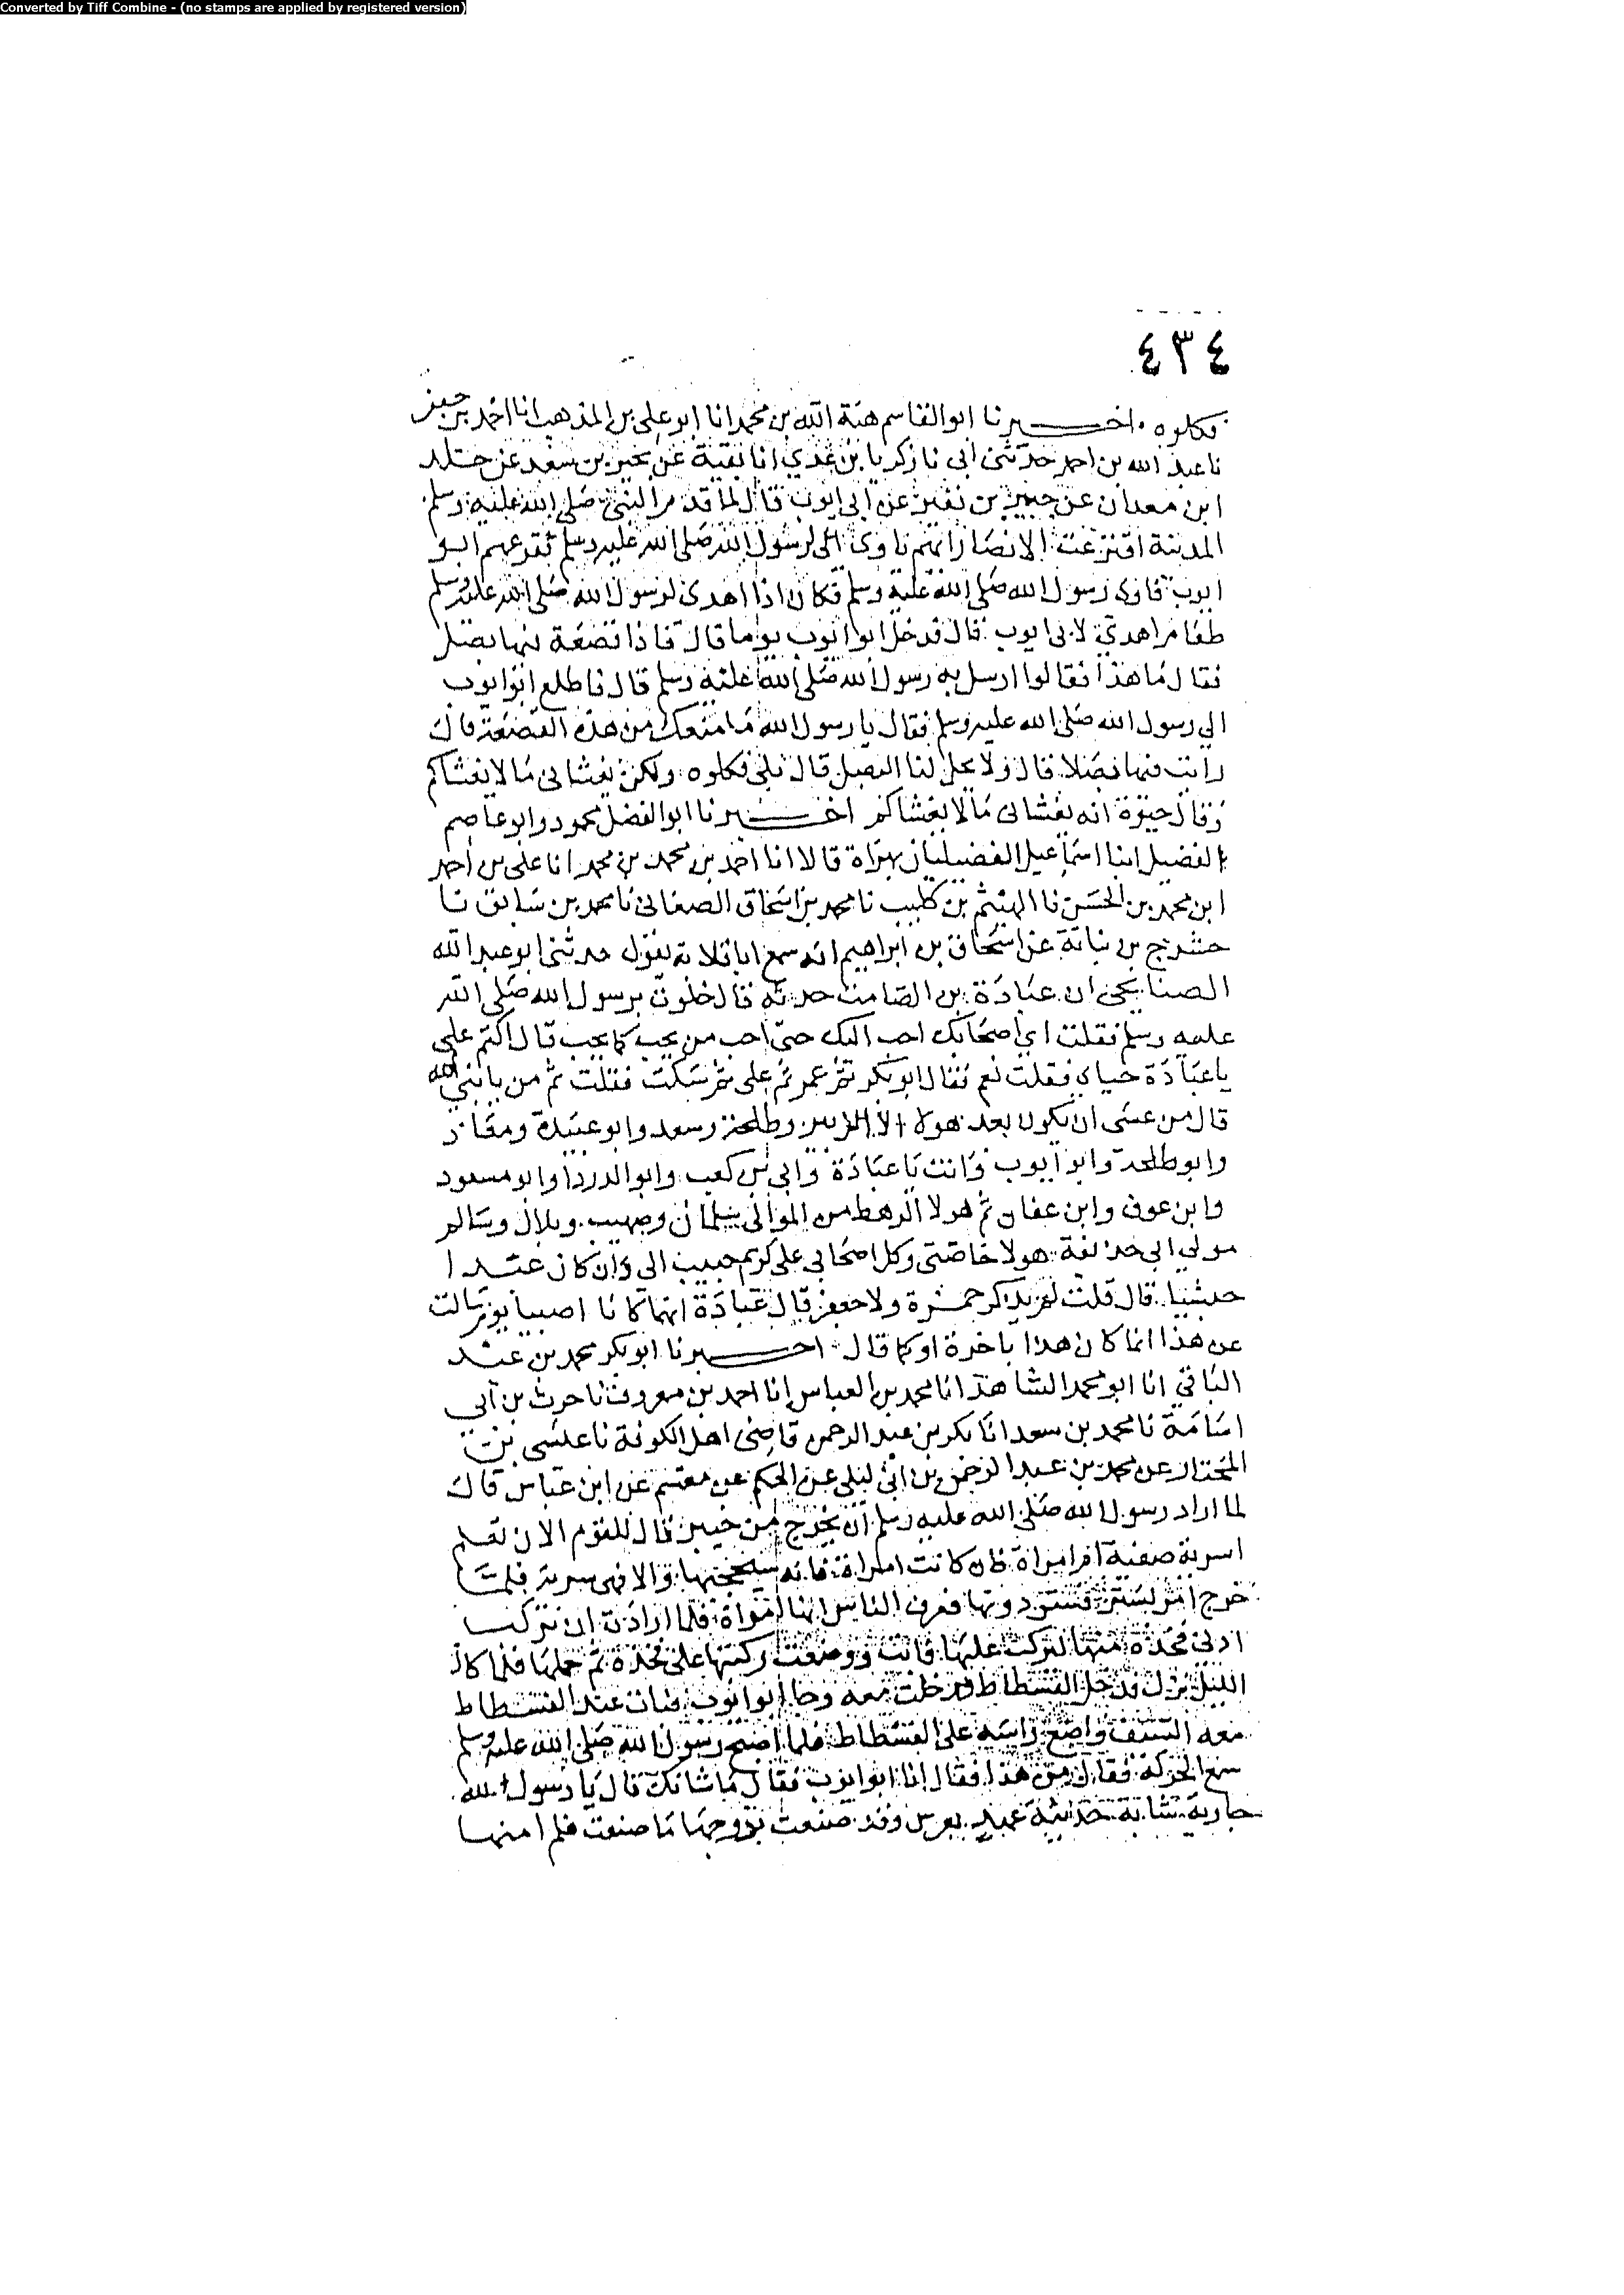 Converted by Tiff Combine - (no stamps are applied by registered version)
٤٣٤
فكلوه . اخبرنا ابو القاسم هبة الله بن محمد انا ابو علي بن المذهب انا احمد بن جعفر
نا عبد الله بن احمد حدثني ابي نا زكريا بن عدي انا بقية عن بحير بن سعد عن خالد
ابن معدان عن جبير بن نفير عن ابي ايوب قال لما قدم النبي صلى الله عليه وسلم
المدينة اقترعت الانصار ايهم ياوي الى رسول الله صلى الله عليه وسلم فقرعهم ابو
ايوب فاوى رسول الله صلى الله عليه وسلم فكان اذا اهدي لرسول الله صلى الله عليه وسلم
طعام اهدي لابي ايوب قال فدخل ابو ايوب يوما قال فاذا قصعة فيها بصل
فقال ما هذا فقالوا ارسل به رسول الله صلى الله عليه وسلم قال فاطلع ابو ايوب
الي رسول الله صلى الله عليه وسلم فقال يا رسول الله ما منعك من هذه القصعة قال
رايت فيها بصلا قال ولا يحل لنا البصل قال بلى فكلوه ولكن يغشاني ما لا يغشاكم
وقال حيوة انه يغشاني ما لا يغشاكم اخبرنا ابو الفضل محمود وابو عاصم
الفضيل ابنا اسماعيل الفضيليان بهراة قالا انا احمد بن محمد بن محمد انا علي بن احمد
ابن محمد بن الحسن نا الهيثم بن كليب نا محمد بن اسحاق الصغاني نا محمد بن سابق نا
حشرج بن نباتة عن اسحاق بن ابراهيم انه سمع ابا قلابة يقول حدثني ابو عبد الله
الصنابحي ان عبادة بن الصامت حدثه قال خلوت برسول الله صلى الله
عليه وسلم فقلت اي اصحابك احب اليك حتى احب من يحب كما يحب قال اكتم علي
يا عبادة حياتي فقلت نعم فقال ابو بكر ثم عمر ثم علي ثم سكت فقلت ثم من يا نبي الله
قال من عسى ان يكون بعد هولا الا الزبير وطلحة وسعد وابو عبيدة ومعاذ
وابو طلحة وابو ايوب وانت يا عبادة وابي بن كعب وابو الدردا وابو مسعود
وابن عوف وابن عفان ثم هولا الرهط من الموالي سلمان وصهيب وبلال وسالم
مولي ابي حذيفة هولا خاصتي وكل اصحابي علي كريم حبيب الى وان كان عبدا
حبشيا قال قلت لم يذكر حمزة ولا جعفر قال عبادة انهما كانا اصيبا يوم سالت
عن هذا انما كان هذا باخرة او كما قال اخبرنا ابو بكر محمد بن عبد
الباقي انا ابو محمد الشاهد انا محمد بن العباس انا احمد بن معروف نا حرث بن ابي
اسامة نا محمد بن سعد انا بكر بن عبد الرحمن قاضي اهل الكوفة نا عيسى بن
المختار عن محمد بن عبد الرحمن بن ابي ليلى عن الحكم عن مقسم عن ابن عباس قال
لما اراد رسول الله صلى الله عليه وسلم ان يخرج من خيبر قال للقوم الان نعلم
اسرية صفية ام امراة فان كانت امراة فانه سيحجبها والا فهي سرية فلما
خرج امر بستر فستر دونها فعرف الناس انها امراة فلما ارادت ان تركب
ادنى فخذه منها لتركب عليها فابت ووضعت ركبتها على فخذه ثم حملها فلما كان
الليل نزل فدخل الفسطاط ودخلت معه وجا ابو ايوب فبات عند الفسطاط
معه السيف واضع راسه على الفسطاط فلما اصبح رسول الله صلى الله عليه وسلم
سمع الحركة فقال من هذا فقال انا ابو ايوب فقال ما شانك قال يا رسول الله
جارية شابة حديثة عهد بعرس وقد صنعت بزوجها ما صنعت فلم امنها